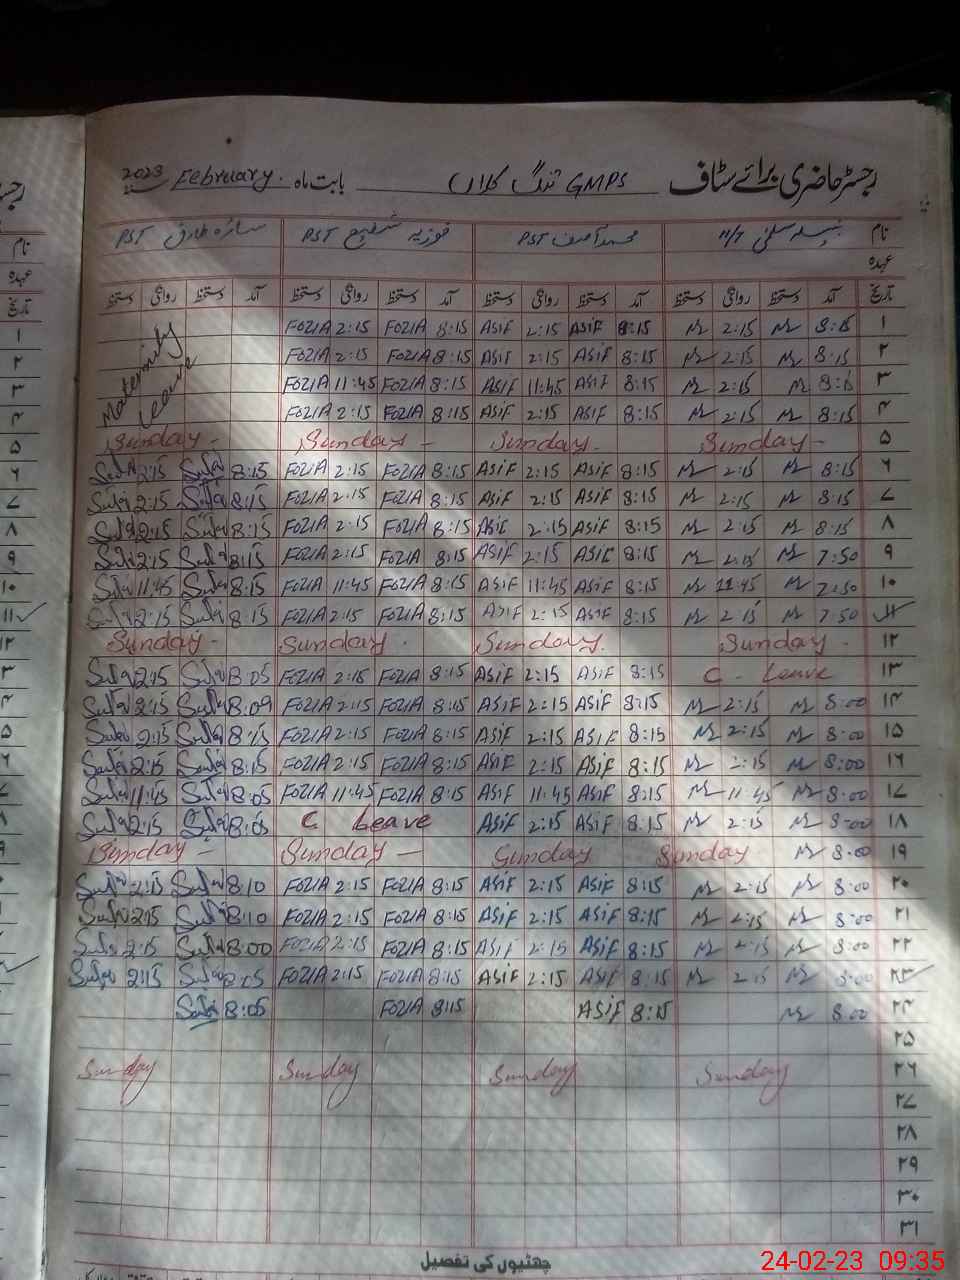 رجسٹر حاضری برائے سٹاف GMPS ننگ کلاں بابت ماہ February. 2023
نام محمد آصف PST فوزیہ شفیع PST سائرہ طارق PST
عہدہ
تاریخ آمد دستخط روانگی دستخط آمد دستخط روانگی دستخط آمد دستخط روانگی دستخط آمد دستخط روانگی دستخط
۱ 8:15 2:15 8:15 ASIF 2:15 ASIF 8:15 FOZIA 2:15 FOZIA Maternity Leave
۲ 8:15 2:15 8:15 ASIF 2:15 ASIF 8:15 FOZIA 2:15 FOZIA
۳ 8:15 2:15 8:15 ASIF 11:45 ASIF 8:15 FOZIA 11:45 FOZIA
۴ 8:15 2:15 8:15 ASIF 2:15 ASIF 8:15 FOZIA 2:15 FOZIA
۵ Sunday - Sunday - Sunday - Sunday -
۶ 8:15 2:15 8:15 ASIF 2:15 ASIF 8:15 FOZIA 2:15 FOZIA 8:15 2:15
۷ 8:15 2:15 8:15 ASIF 2:15 ASIF 8:15 FOZIA 2:15 FOZIA 8:15 2:15
۸ 8:15 2:15 8:15 ASIF 2:15 ASIF 8:15 FOZIA 2:15 FOZIA 8:15 2:15
۹ 7:50 2:15 8:15 ASIF 2:15 ASIF 8:15 FOZIA 2:15 FOZIA 8:15 2:15
۱۰ 7:50 11:45 8:15 ASIF 11:45 ASIF 8:15 FOZIA 11:45 FOZIA 8:15 11:45
۱۱ 7:50 2:15 8:15 ASIF 2:15 ASIF 8:15 FOZIA 2:15 FOZIA 8:15 2:15
۱۲ Sunday - Sunday. Sunday. Sunday -
۱۳ C. Leave 8:15 ASIF 2:15 ASIF 8:15 FOZIA 2:15 FOZIA 8:05 2:15
۱۴ 8:00 2:15 8:15 ASIF 2:15 ASIF 8:15 FOZIA 2:15 FOZIA 8:09 2:15
۱۵ 8:00 2:15 8:15 ASIF 2:15 ASIF 8:15 FOZIA 2:15 FOZIA 8:15 2:15
۱۶ 8:00 2:15 8:15 ASIF 2:15 ASIF 8:15 FOZIA 2:15 FOZIA 8:15 2:15
۱۷ 8:00 11:45 8:15 ASIF 11:45 ASIF 8:15 FOZIA 11:45 FOZIA 8:05 11:45
۱۸ 8:00 2:15 8:15 ASIF 2:15 ASIF C. Leave 8:05 2:15
۱۹ 8:00 Sunday Sunday Sunday - Sunday -
۲۰ 8:00 2:15 8:15 ASIF 2:15 ASIF 8:15 FOZIA 2:15 FOZIA 8:10 2:15
۲۱ 8:00 2:15 8:15 ASIF 2:15 ASIF 8:15 FOZIA 2:15 FOZIA 8:10 2:15
۲۲ 8:00 2:15 8:15 ASIF 2:15 ASIF 8:15 FOZIA 2:15 FOZIA 8:00 2:15
۲۳ 8:00 2:15 8:15 ASIF 2:15 ASIF 8:15 FOZIA 2:15 FOZIA 8:05 2:15
۲۴ 8:00 8:15 ASIF 8:15 FOZIA 8:05
۲۵
۲۶ Sunday Sunday Sunday Sunday
۲۷
۲۸
۲۹
۳۰
۳۱
چھٹیوں کی تفصیل
24-02-23 09:35